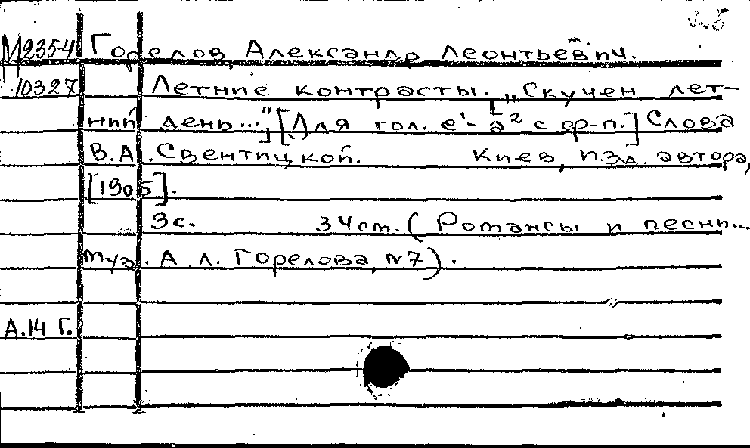 М2354 Горелов, Александр Леонтьевич.
10327 Летние контрасты. „Скучен лет-
ний день...", [Для гол. e'- a² с ф-п.] Слова
В.А. Свентицкой. Киев, изд. автора,
[1905].
3с. 34см. (Романсы и песни...
муз. А.Л. Горелова, №7).
А.14 Г.